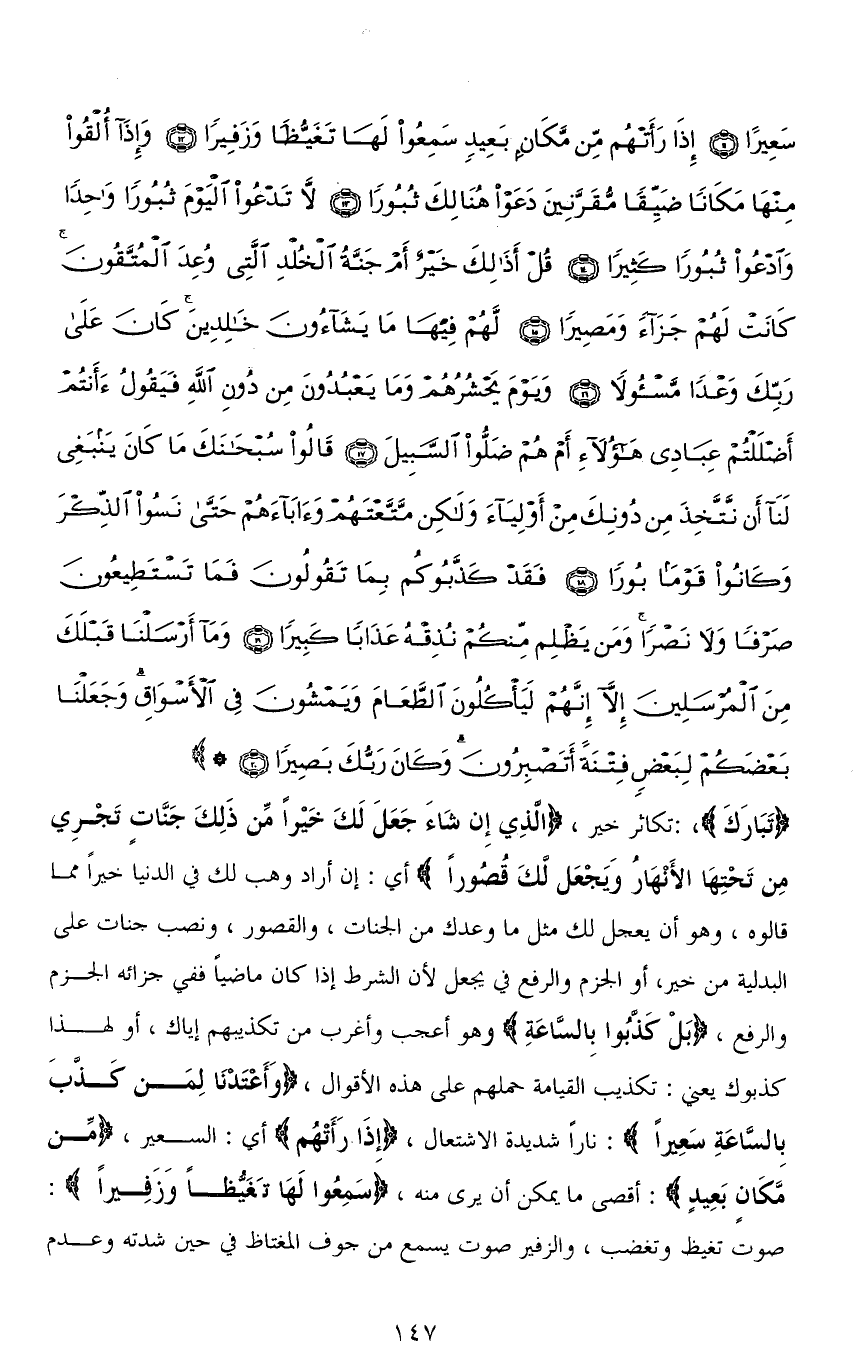 سَعِيرًا ۝١١ إِذَا رَأَتْهُم مِّن مَّكَانٍۭ بَعِيدٍ سَمِعُوا۟ لَهَا تَغَيُّظًا وَزَفِيرًا ۝١٢ وَإِذَآ أُلْقُوا۟
مِنْهَا مَكَانًا ضَيِّقًا مُّقَرَّنِينَ دَعَوْا۟ هُنَالِكَ ثُبُورًا ۝١٣ لَّا تَدْعُوا۟ ٱلْيَوْمَ ثُبُورًا وَٰحِدًا
وَٱدْعُوا۟ ثُبُورًا كَثِيرًا ۝١٤ قُلْ أَذَٰلِكَ خَيْرٌ أَمْ جَنَّةُ ٱلْخُلْدِ ٱلَّتِى وُعِدَ ٱلْمُتَّقُونَ ۚ
كَانَتْ لَهُمْ جَزَآءً وَمَصِيرًا ۝١٥ لَّهُمْ فِيهَا مَا يَشَآءُونَ خَٰلِدِينَ ۚ كَانَ عَلَىٰ
رَبِّكَ وَعْدًا مَّسْـُٔولًا ۝١٦ وَيَوْمَ يَحْشُرُهُمْ وَمَا يَعْبُدُونَ مِن دُونِ ٱللَّهِ فَيَقُولُ ءَأَنتُمْ
أَضْلَلْتُمْ عِبَادِى هَٰٓؤُلَآءِ أَمْ هُمْ ضَلُّوا۟ ٱلسَّبِيلَ ۝١٧ قَالُوا۟ سُبْحَٰنَكَ مَا كَانَ يَنۢبَغِى
لَنَآ أَن نَّتَّخِذَ مِن دُونِكَ مِنْ أَوْلِيَآءَ وَلَٰكِن مَّتَّعْتَهُمْ وَءَابَآءَهُمْ حَتَّىٰ نَسُوا۟ ٱلذِّكْرَ
وَكَانُوا۟ قَوْمًۢا بُورًا ۝١٨ فَقَدْ كَذَّبُوكُم بِمَا تَقُولُونَ فَمَا تَسْتَطِيعُونَ
صَرْفًا وَلَا نَصْرًا ۚ وَمَن يَظْلِم مِّنكُمْ نُذِقْهُ عَذَابًا كَبِيرًا ۝١٩ وَمَآ أَرْسَلْنَا قَبْلَكَ
مِنَ ٱلْمُرْسَلِينَ إِلَّآ إِنَّهُمْ لَيَأْكُلُونَ ٱلطَّعَامَ وَيَمْشُونَ فِى ٱلْأَسْوَاقِ ۗ وَجَعَلْنَا
بَعْضَكُمْ لِبَعْضٍ فِتْنَةً أَتَصْبِرُونَ ۗ وَكَانَ رَبُّكَ بَصِيرًا ۝٢٠ * ﴾
﴿تَبَارَكَ ﴾، :تكاثر خير ، ﴿الَّذِي إِن شَاءَ جَعَلَ لَكَ خَيْراً مِّن ذَلِكَ جَنَّاتٍ تَجْرِي
مِن تَحْتِهَا الأَنْهَارُ وَيَجْعَل لَّكَ قُصُوراً ﴾ أي : إن أراد وهب لك في الدنيا خيراً مما
قالوه ، وهو أن يعجل لك مثل ما وعدك من الجنات ، والقصور ، ونصب جنات على
البدلية من خير، أو الجزم والرفع في يجعل لأن الشرط إذا كان ماضياً ففي جزائه الجـزم
والرفع ، ﴿بَلْ كَذَّبُوا بِالسَّاعَةِ ﴾ وهو أعجب وأغرب من تكذيبهم إياك ، أو لهـذا
كذبوك يعني : تكذيب القيامة حملهم على هذه الأقوال ، ﴿وَأَعْتَدْنَا لِمَـن كَـذَّبَ
بِالسَّاعَةِ سَعِيراً ﴾ : ناراً شديدة الاشتعال ، ﴿إِذَا رَأَتْهُم ﴾ أي : السـعير ، ﴿مِّـن
مَّكَانٍ بَعِيدٍ ﴾ : أقصى ما يمكن أن يرى منه ، ﴿سَمِعُوا لَهَا تَغَيُّظـاً وَزَفِـيراً ﴾ :
صوت تغيظ وتغضب ، والزفير صوت يسمع من جوف المغتاظ في حين شدته وعـدم
١٤٧